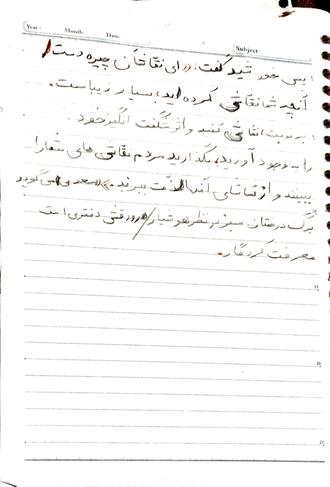 Year: Month: Date: Subject:
پس خورشید گفت: «ای نقاشان چیره دست!
آنچه شما نقاشی کرده اید، بسیار زیباست.
به نوبت نقاشی کنید و اثر شگفت انگیز خود
را به وجود آورید، بگذارید مردم نقاشی های شما را
ببینند و از تماشای آنها لذت ببرند.» سعدی می گوید
برگ درختان سبز در نظر هوشیار / هر ورقش دفتری است
معرفت کردگار.